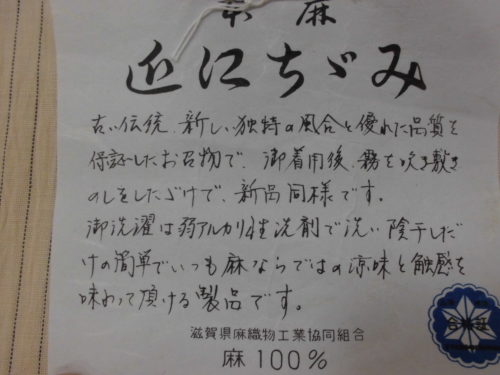 本麻
近江ちゞみ
古い伝統、新しい独特の風合と優れた品質を
保証したお召物で、御着用後、霧を吹き敷き
のしをしたゞけで、新品同様です。
御洗濯は弱アルカリ性洗剤で洗い陰干しだ
けの簡単でいつも麻ならではの涼味と触感を
味わって頂ける製品です。
滋賀県麻織物工業協同組合
麻100%
合格証